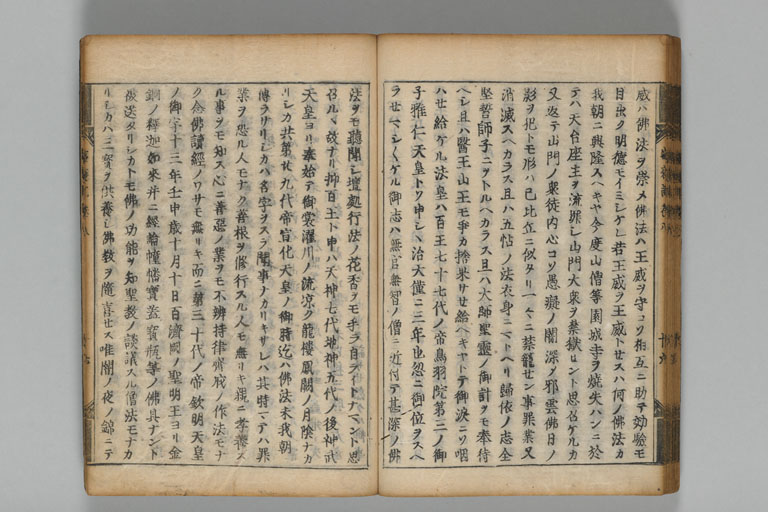 威ハ佛法ヲ崇メ佛法ハ王威ヲ守コソ相互ニ助テ効驗モ
目出ク明德モイミシケレ若王威ヲ王威トセスハ何ノ佛法カ
我朝ニ興隆スヘキヤ今度山僧等園城寺ヲ燒失ハンニ於
テハ天台座主ヲ流罪シ山門大衆ヲ禁獄セント思召ケルカ
又返テ山門ノ衆徒内心コソ愚癡ノ闇深ク邪雲佛日ノ
影ヲ把トモ形ハ已比丘ニ似タリ一々ニ禁籠セン事罪業又
消滅スヘカラス且ハ五帖ノ法衣身ニマトヘリ歸依ノ志全
堅誓師子ニヲトルヘカラス且ハ大師聖靈ノ御計ヲモ奉待
ヘシ且ハ醫王山王モ爭カ捨果サセ給ヘキヤトテ御涙ニソ咽
ハセ給ケル法皇ハ百王七十七代ノ帝鳥羽院第三ノ御
子雅仁天皇トソ申シヽ治天僅ニ三年也忽ニ御位ヲスヘ
ラセマシ〱ケル御志ハ無官無智ノ僧ニ近付テ甚深ノ佛
法ヲモ聽聞シ壇勤行法ノ花香ヲモ手ラ自ライトナマント思
召ルヽ故ナリ抑百王ト申ハ天神七代地神五代ノ後神武
天皇ヨリ奉始テ御裳濯川ノ流凉ク龍樓鳳闕ノ月陰ナカ
リシカ共第廿九代帝宣化天皇ノ御時迄ハ佛法未我朝
傳ラサリシカハ名字ヲスラ聞事ノカリキサレハ其時マテハ罪
業ヲ恐ル人モナク善根ヲ修行スル人モ無リキ親ニ孝養ス
ル事ヲモ知ス心ニ善惡ノ業ヲモ不辨持律齋戒ノ作法モナ
ク念佛讀經ノワサモ無リキ而ニ第三十代ノ帝欽明天皇
ノ御宇十三年壬申歳十月十日百濟國ノ聖明王ヨリ金
銅ノ釋迦如來并ニ經論幢幡寶蓋寶瓶等ノ佛具ナント
被送タリシカトモ佛ノ功能ヲ知聖教ノ談議スル僧法モナカ
リシカハ三寶ヲ供養シ佛教ヲ隨喜セス唯闇ノ夜ノ錦ニテ